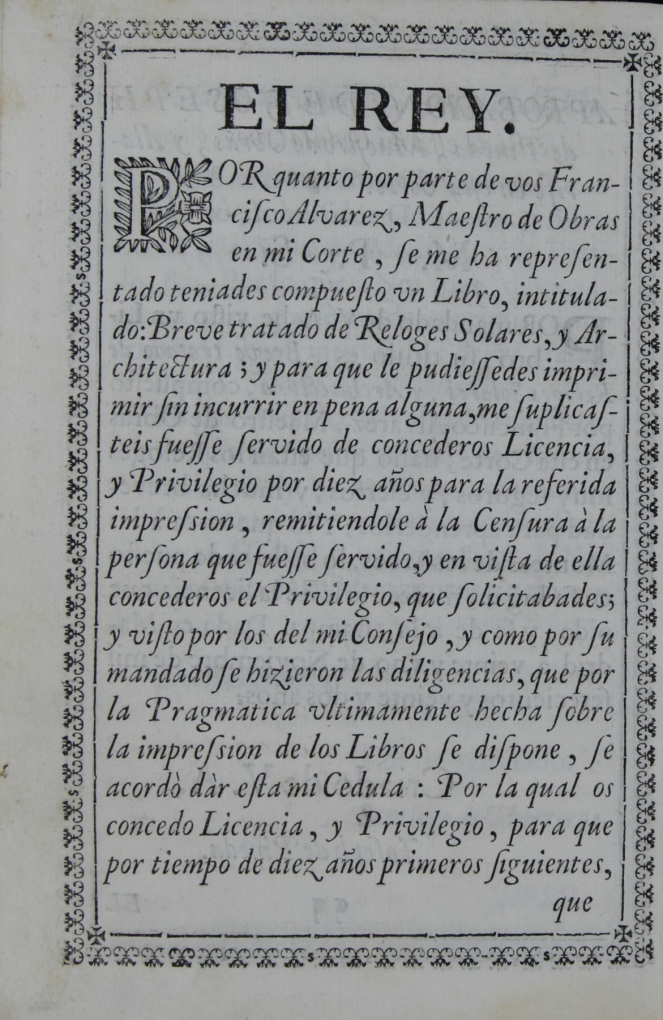 EL REY.
POR quanto por parte de vos Fran-
ciſco Alvarez, Maeſtro de Obras
en mi Corte, ſe me ha repreſen-
tado teniades compueſto vn Libro, intitula-
do: Breve tratado de Reloges Solares, y Ar-
chitectura; y para que le pudieſſedes impri-
mir ſin incurrir en pena alguna, me ſuplicaſ-
teis fueſſe ſervido de concederos Licencia,
y Privilegio por diez años para la referida
impreſsion, remitiendole à la Cenſura à la
perſona que fueſſe ſervido, y en viſta de ella
concederos el Privilegio, que ſolicitabades;
y viſto por los del mi Conſejo, y como por ſu
mandado ſe hizieron las diligencias, que por
la Pragmatica vltimamente hecha ſobre
la impreſsion de los Libros ſe diſpone, ſe
acordò dàr eſta mi Cedula: Por la qual os
concedo Licencia, y Privilegio, para que
por tiempo de diez años primeros ſiguientes,
que